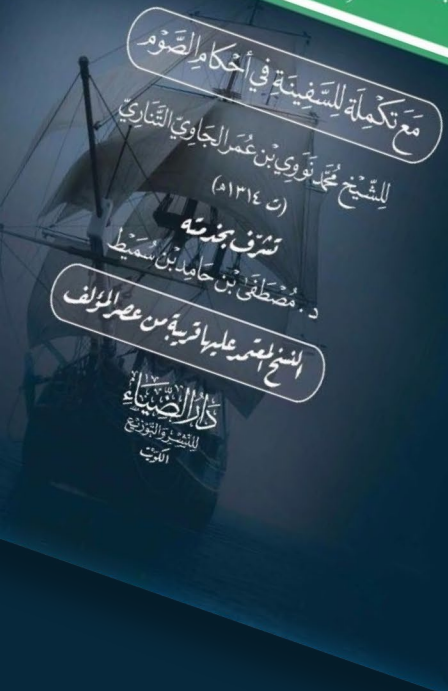 مَعَ تَكْمِلَة لِلسَّفِينَةِ فِي أَحْكَامِ الصَّوْم
لِلشَّيْخِ مُحَمَّد نَوَوِي بْن عُمَر الجَاوِيّ التَّنَارِيّ
(ت ١٣١٤هـ)
تشرّف بخدمته
د. مُصْطَفَى بْن حَامِد بْن سُمَيْط
النسخ المعتمد عليها قريبة من عصر المؤلف
دَارُ الضِّيَاء
لِلنَّشْرِ وَالتَّوْزِيع
الكويت